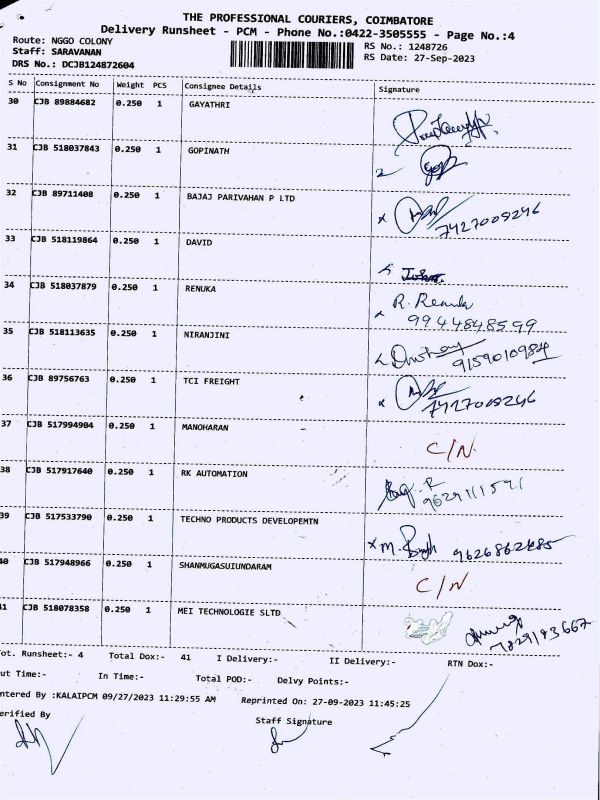 THE PROFESSIONAL COURIERS, COIMBATORE
Delivery Runsheet - PCM - Phone No.:0422-3505555 - Page No.:4
Route: NGGO COLONY
RS No.: 1248726
Staff: SARAVANAN
RS Date: 27-Sep-2023
DRS No.: DCJB124872604
S No Consignment No Weight PCS Consignee Details Signature
30 CJB 89884682 0.250 1 GAYATHRI
31 CJB 518037843 0.250 1 GOPINATH
32 CJB 89711408 0.250 1 BAJAJ PARIVAHAN P LTD
7427009246
33 CJB 518119864 0.250 1 DAVID
34 CJB 518037879 0.250 1 RENUKA R. Renuka
9944848599
35 CJB 518113635 0.250 1 NIRANJINI
9159010984
36 CJB 89756763 0.250 1 TCI FREIGHT
7427009246
37 CJB 517994904 0.250 1 MANOHARAN C/N
38 CJB 517917640 0.250 1 RK AUTOMATION
39 CJB 517533790 0.250 1 TECHNO PRODUCTS DEVELOPEMTN
40 CJB 517948966 0.250 1 SHANMUGASUIUNDARAM C/N
41 CJB 518078358 0.250 1 MEI TECHNOLOGIE SLTD
ot. Runsheet:- 4 Total Dox:- 41 I Delivery:- II Delivery:- RTN Dox:-
ut Time:- In Time:- Total POD:- Delvy Points:-
ntered By :KALAIPCM 09/27/2023 11:29:55 AM Reprinted On: 27-09-2023 11:45:25
erified By Staff Signature